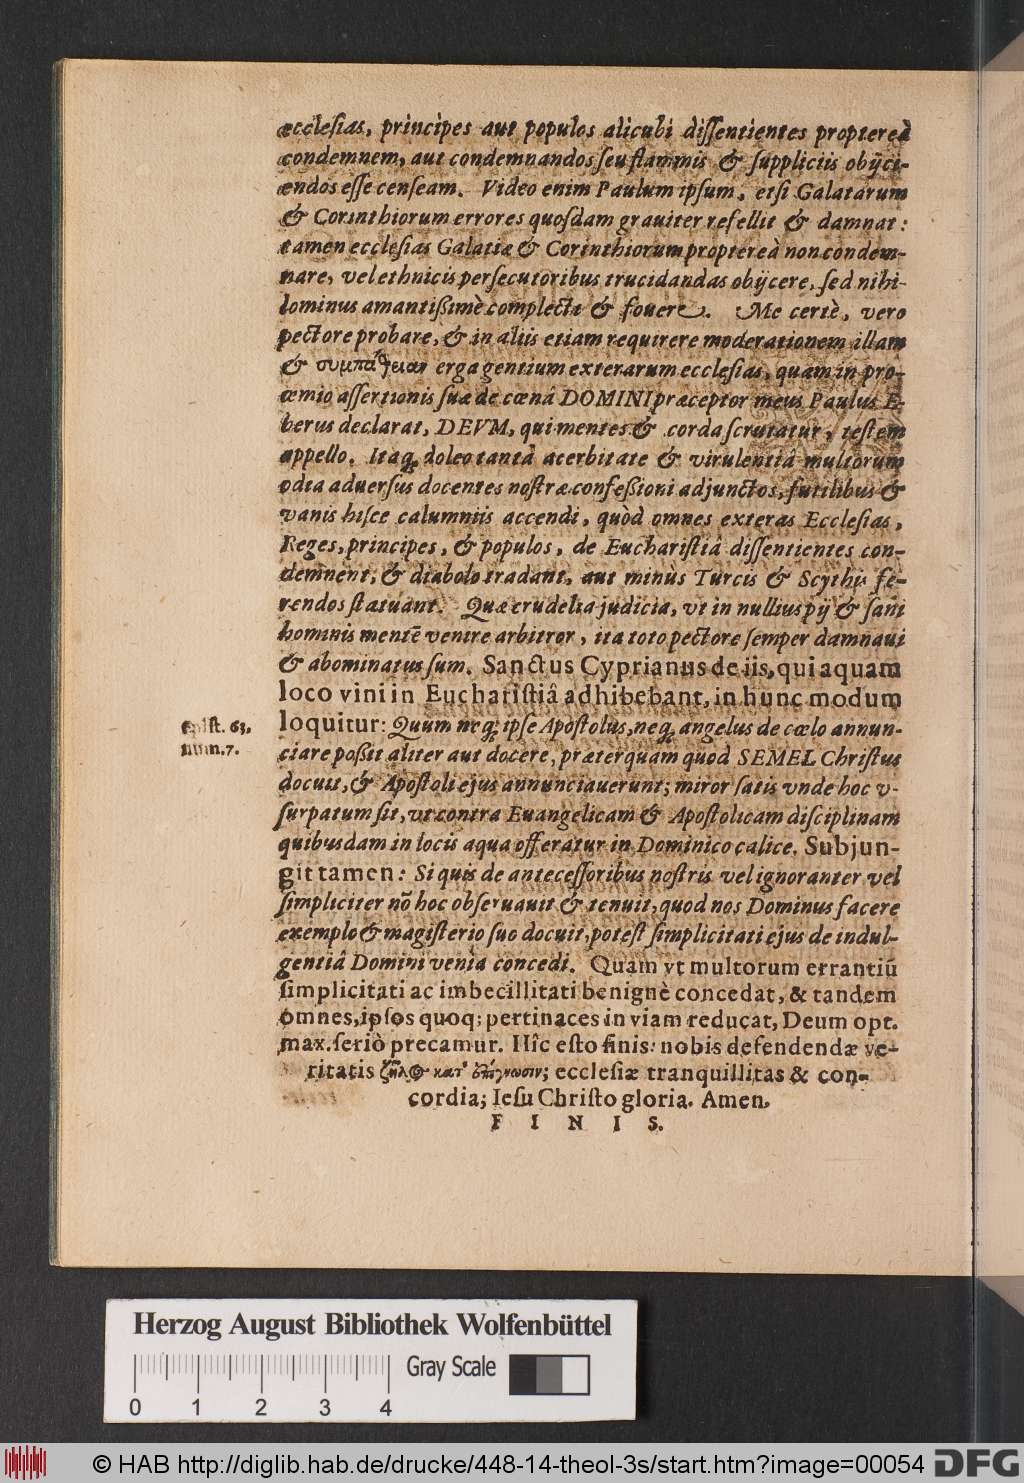 ecclesias, principes aut populos alicubi dissentientes proptereà
condemnem, aut condemnandos seu flammis & suppliciis obijci-
endos esse censeam. Video enim Paulum ipsum, etsi Galatarum
& Corinthiorum errores quosdam graviter refellit & damnat:
tamen ecclesias Galatiæ & Corinthiorum proptereà non condem-
nare, vel ethnicis persecutoribus trucidandas obijcere, sed nihi-
lominus amantißimè complecti & fovere. Me certè, vero
pectore probare, & in aliis etiam requirere moderationem illam
& συμπάθειαν erga gentium exterarum ecclesias, quam in pro-
œmio assertionis suæ de cœnâ DOMINI præceptor meus Paulus E-
berus declarat, DEVM, qui mentes & corda scrutatur, testem
appello. Itaq; doleo tantâ acerbitate & virulentiâ multorum
odia adversus docentes nostræ confeßioni adjunctos, futilibus &
vanis hisce calumniis accendi, quòd omnes exteras Ecclesias,
Reges, principes, & populos, de Euchariftiâ dissentientes con-
demnent, & diabolo tradant, aut minùs Turcis & Scythis fe-
rendos statuant. Quæ crudelia judicia, vt in nullius pij & sani
hominis mentē venire arbitror, ita toto pectore semper damnaui
& abominatus sum. Sanctus Cyprianus de iis, qui aquam
loco vini in Eucharistiâ adhibebant, in hunc modum
loquitur: Quum neq; ipse Apostolus, neq; angelus de cœlo annun-
ciare poßit aliter aut docere, præterquam quod SEMEL Christus
docuit, & Apostoli ejus annunciauerunt; miror satis vnde hoc v-
surpatum sit, vt contra Euangelicam & Apostolicam disciplinam
quibusdam in locis aqua offeratur in Dominico calice. Subjun-
git tamen: Si quis de antecessoribus nostris vel ignoranter vel
simpliciter nō hoc obseruauit & tenuit, quod nos Dominus facere
exemplo & magisterio suo docuit, potest simplicitati ejus de indul-
gentiâ Domini venia concedi. Quam vt multorum errantiū
simplicitati ac imbecillitati benignè concedat, & tandem
omnes, ipsos quoq; pertinaces in viam reducat, Deum opt.
max. seriò precamur. Hîc esto finis: nobis defendendæ ve-
ritatis ζῆλος κατ' ἐπίγνωσιν; ecclesiæ tranquillitas & con-
cordia; Iesu Christo gloria. Amen.
F I N I S.
epist. 63,
num. 7.
Herzog August Bibliothek Wolfenbüttel
Gray Scale
0 1 2 3 4
© HAB http://diglib.hab.de/drucke/448-14-theol-3s/start.htm?image=00054
DFG